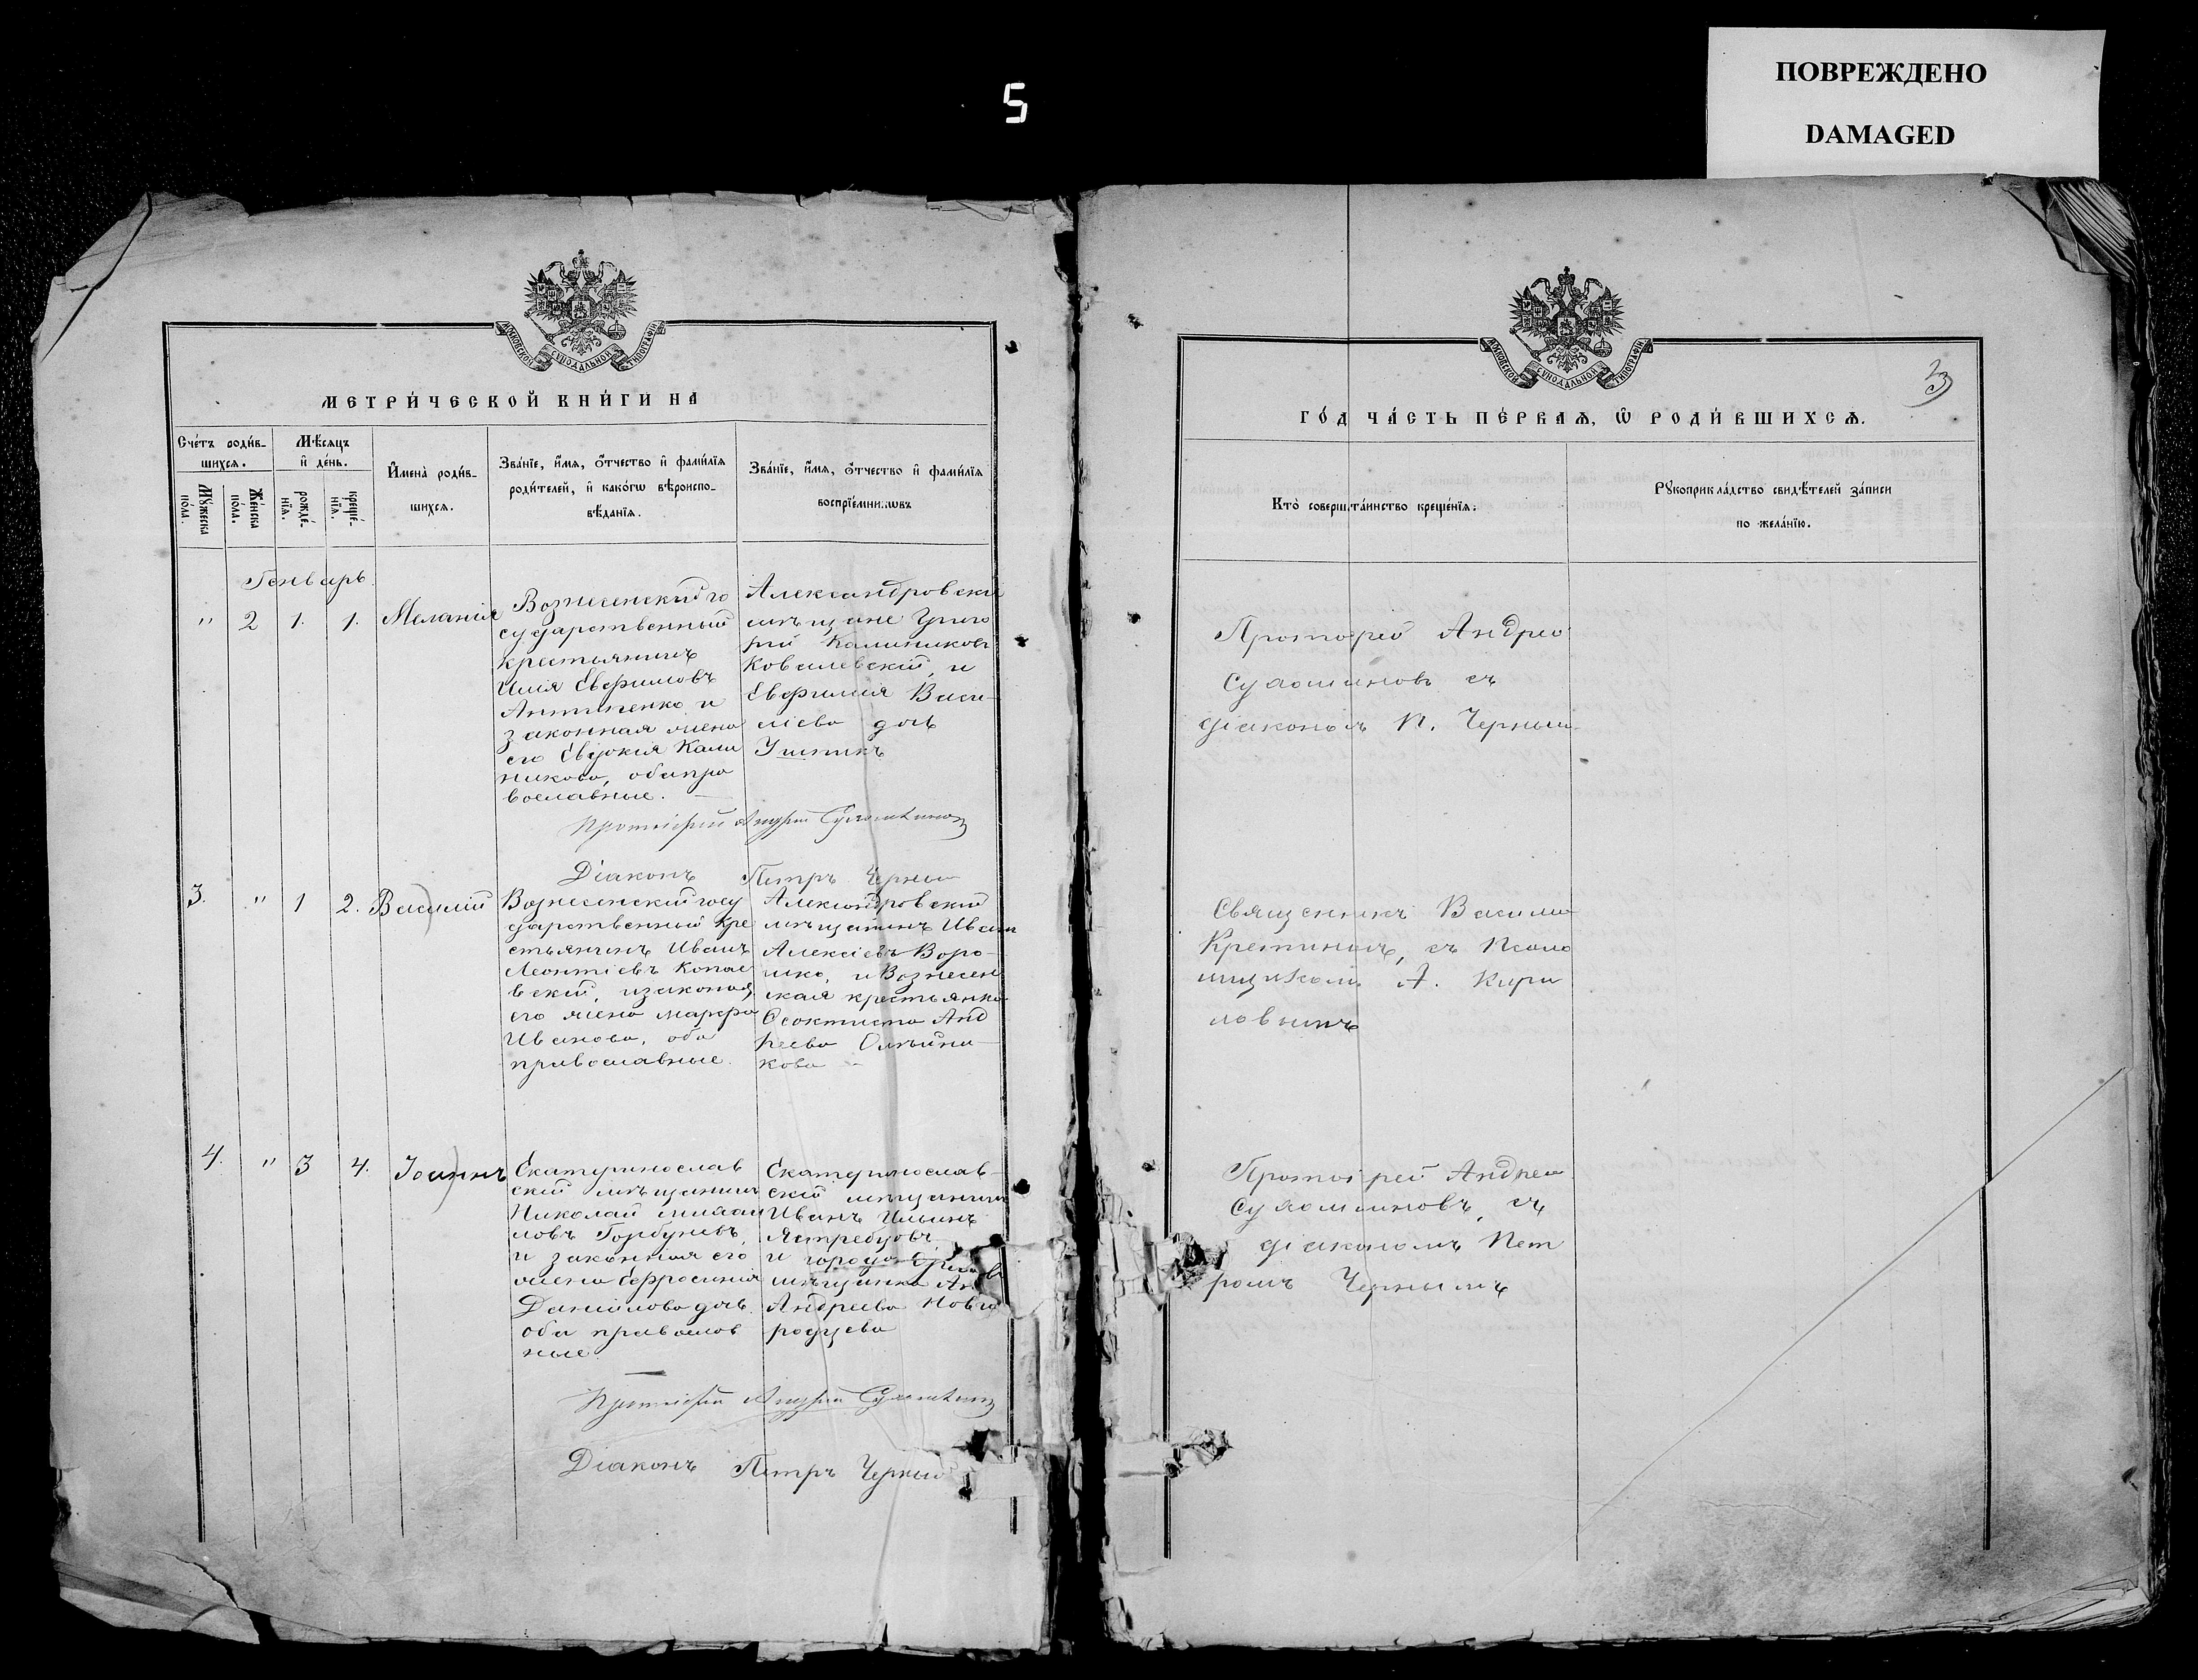 ПОВРЕЖДЕНО
DAMAGED
5
МОСКОВСКОЙ СѴНОДАЛЬНОЙ ТИПОГРАФІИ
МЕТРИ́ЧЕСКОЙ КНИ́ГИ НА
Сче́тъ роди́в-
шихсѧ.
Мѣ́сѧцъ
и҆ де́нь.
Мꙋ́жеска по́ла.
Же́нска по́ла.
рожде́-нїѧ.
креще́-нїѧ.
И҆мена̀ роди́в-
шихсѧ.
Зва́нїе, и҆́мѧ, ѻ҆́тчество и҆ фами́лїѧ
роди́телей, и҆ како́гѡ вѣроиспо-
вѣ́данїѧ.
Зва́нїе, и҆́мѧ, ѻ҆́тчество и҆ фами́лїѧ
воспрїе́мникѡвъ
Генварь
" 2 1. 1. Меланія
Вознесенский го
сударственный
крестьянинъ
Илія Евфимовъ
Антипенко и
законная жена
его Евдокия Кали
никова, оба пра
вославные.
Александровскіе
мѣщане Григо
рий Калиниковъ
Ковалевскій, и
Евфимия Васи-
лиева дочь
Протоіерей Андрей
Діаконъ Петръ Черный
3. " 1 2. Василий
Вознесенский госу
дарственный кре
стьянинъ Иванъ
Леонтіевъ Копае
вский, и законая
его жена Марфа
Иванова, оба
православные.
Александровский
мѣщанинъ Иванъ
Алексіевъ Воро-
шко, и Вознесен
ская крестьянка
Ѳеоктиста Анд
реева Олѣйни-
кова
4. " 3 4. Іоаннъ
Екатеринослав
ский мѣщанинъ
Николай Михаи
ловъ Горбуневъ,
и законная его
жена Ефросиния
Даниилова дочь.
оба православ
ные.
Екатеринослав-
ский мѣщанинъ
Иванъ Ильинъ
Ястребовъ
и города
мѣщанка
Андреева Новго
родцева
Протоіерей Андрей
Діаконъ Петръ Черный
МОСКОВСКОЙ СѴНОДАЛЬНОЙ ТИПОГРАФІИ
3
ГО́Д ЧА́СТЬ ПЕ́РВАѦ, Ѡ҆ РОДИ́ВШИХСѦ.
Кто̀ соверш. та́инство креще́нїѧ.
Рꙋкоприкла́дство свидѣ́телей за́писи
по жела́нїю.
Протоіерей Андрей
Сухомлиновъ съ
діакономъ П. Чернымъ
Священникъ Василий
Кретининъ, съ Псало
мщикомъ А. Кири
ловымъ
Протоіерей Андрей
Сухомлиновъ, съ
діакономъ Пет
ромъ Чернымъ